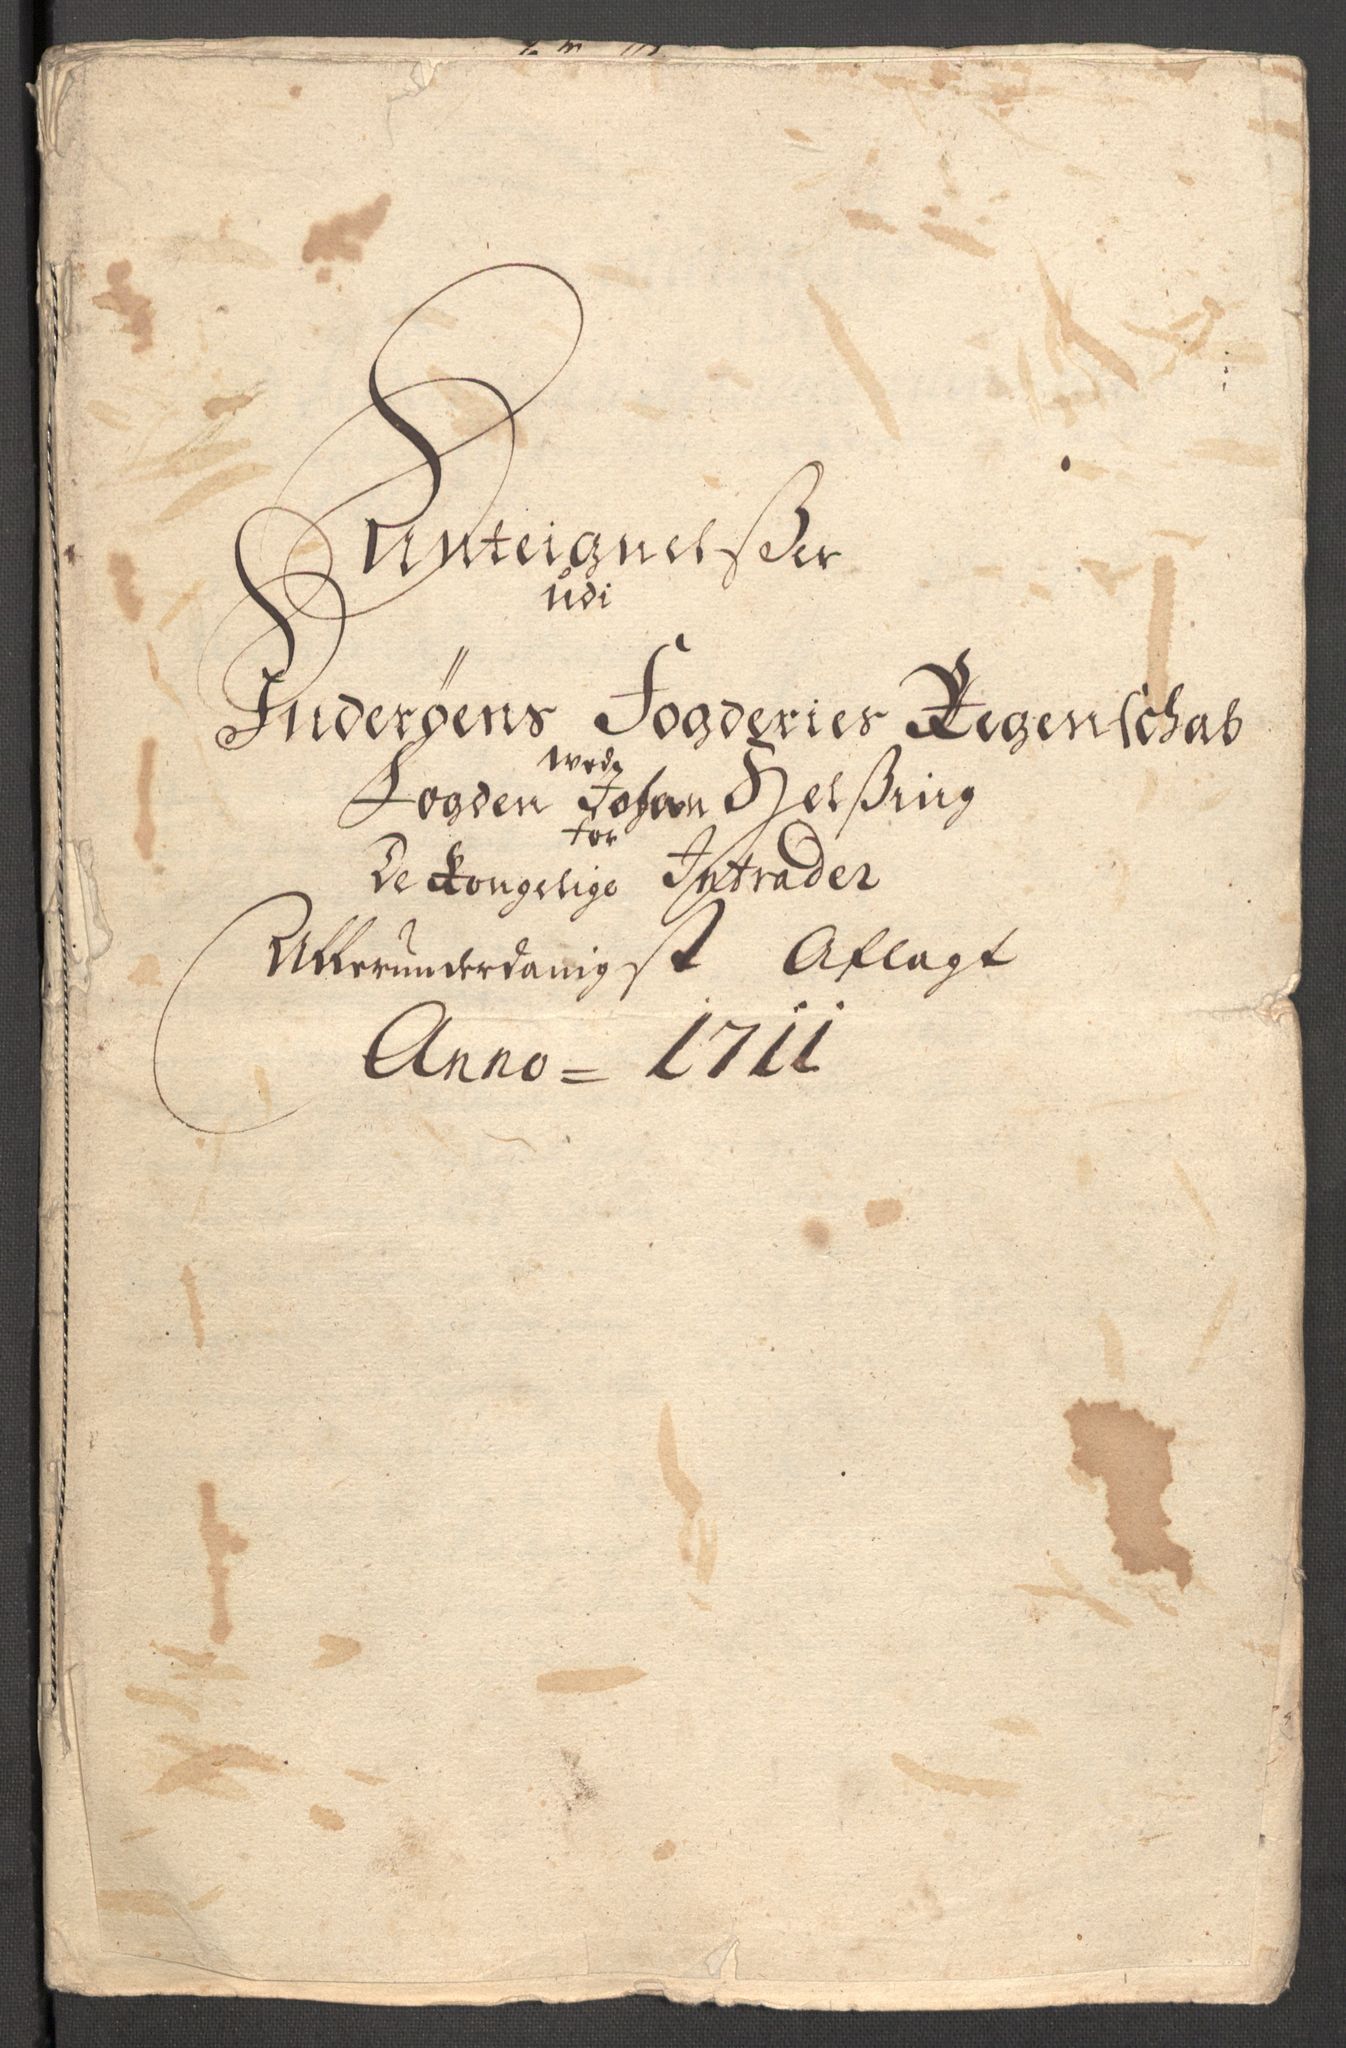 Anteignelsser
udi
Inderøens Fogderies Regenschab
wed
Fogden Johan Helssing
for
De kongelige Intrader
Allerunderdanigst Aflagt
Anno = 1711